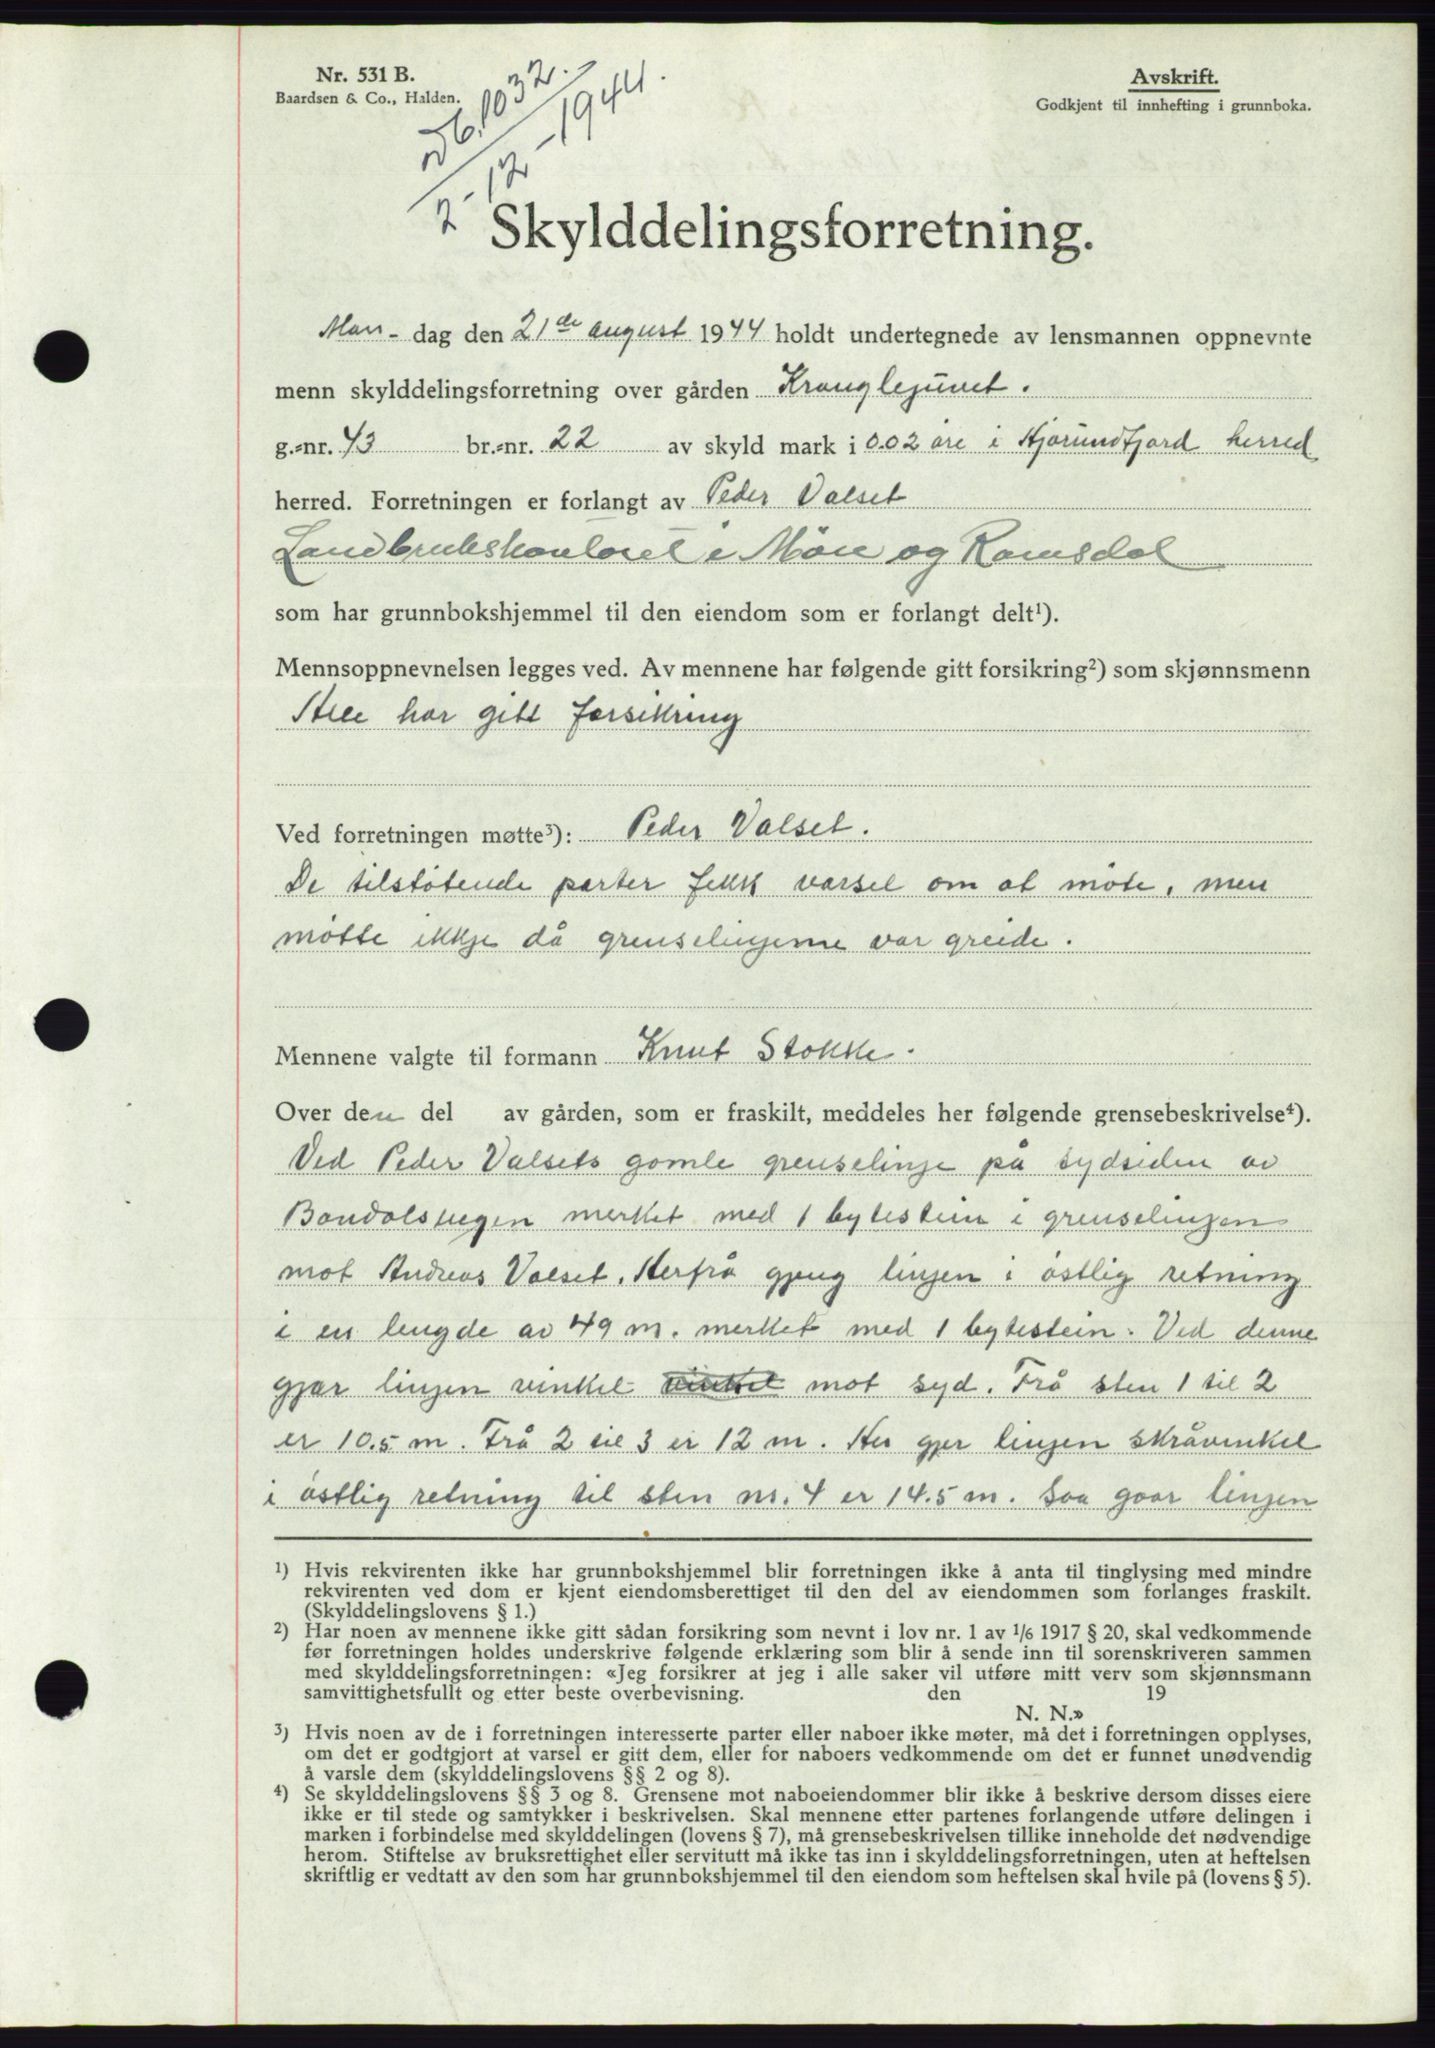 Nr. 531 B.
Baardsen & Co., Halden.
Avskrift.
Godkjent til innhefting i grunnboka.
db. 1032.
2-12-1944.
Skylddelingsforretning.
Man- dag den 21de august 1944 holdt undertegnede av lensmannen oppnevnte
menn skylddelingsforretning over gården Kranglejuvet.
g.-nr. 43 br.-nr. 22 av skyld mark i 0.02 øre i Hjørundfjord herred
herred. Forretningen er forlangt av Peder Valset
Landbrukskontoret i Møre og Romsdal
som har grunnbokshjemmel til den eiendom som er forlangt delt¹).
Mennsoppnevnelsen legges ved. Av mennene har følgende gitt forsikring²) som skjønnsmenn
Alle har gitt forsikring
Ved forretningen møtte³): Peder Valset.
De tilstøtende parter fekk varsel om at møte, men
møtte ikkje då grenselinjerne var greide.
Mennene valgte til formann Knut Stokke.
Over den del av gården, som er fraskilt, meddeles her følgende grensebeskrivelse⁴).
Ved Peder Valsets gamle grenselinje på sydsiden av
Bondalsvegen merket med 1 bytestein i grenselinjen
mot Andreas Valset. Herfrå gjeng linjen i østlig retning
i en lengde av 49 m. merket med 1 bytestein. Ved denne
gjør linjen vinkel vinkel mot syd. Frå sten 1 til 2
er 10.5 m. Frå 2 til 3 er 12 m. Her gjer linjen skråvinkel
i østlig retning til sten nr. 4 er 14.5 m. Saa gaar linjen
¹) Hvis rekvirenten ikke har grunnbokshjemmel blir forretningen ikke å anta til tinglysing med mindre
rekvirenten ved dom er kjent eiendomsberettiget til den del av eiendommen som forlanges fraskilt.
(Skylddelingslovens § 1.)
²) Har noen av mennene ikke gitt sådan forsikring som nevnt i lov nr. 1 av 1/6 1917 § 20, skal vedkommende
før forretningen holdes underskrive følgende erklæring som blir å sende inn til sorenskriveren sammen
med skylddelingsforretningen: «Jeg forsikrer at jeg i alle saker vil utføre mitt verv som skjønnsmann
samvittighetsfullt og etter beste overbevisning. den 19
N. N.»
³) Hvis noen av de i forretningen interesserte parter eller naboer ikke møter, må det i forretningen opplyses,
om det er godtgjort at varsel er gitt dem, eller for naboers vedkommende om det er funnet unødvendig
å varsle dem (skylddelingslovens §§ 2 og 8).
⁴) Se skylddelingslovens §§ 3 og 8. Grensene mot naboeiendommer blir ikke å beskrive dersom disses eiere
ikke er til stede og samtykker i beskrivelsen. Skal mennene etter partenes forlangende utføre delingen i
marken i forbindelse med skylddelingen (lovens § 7), må grensebeskrivelsen tillike inneholde det nødvendige
herom. Stiftelse av bruksrettighet eller servitutt må ikke tas inn i skylddelingsforretningen, uten at heftelsen
skriftlig er vedtatt av den som har grunnbokshjemmel til den eiendom som heftelsen skal hvile på (lovens § 5).